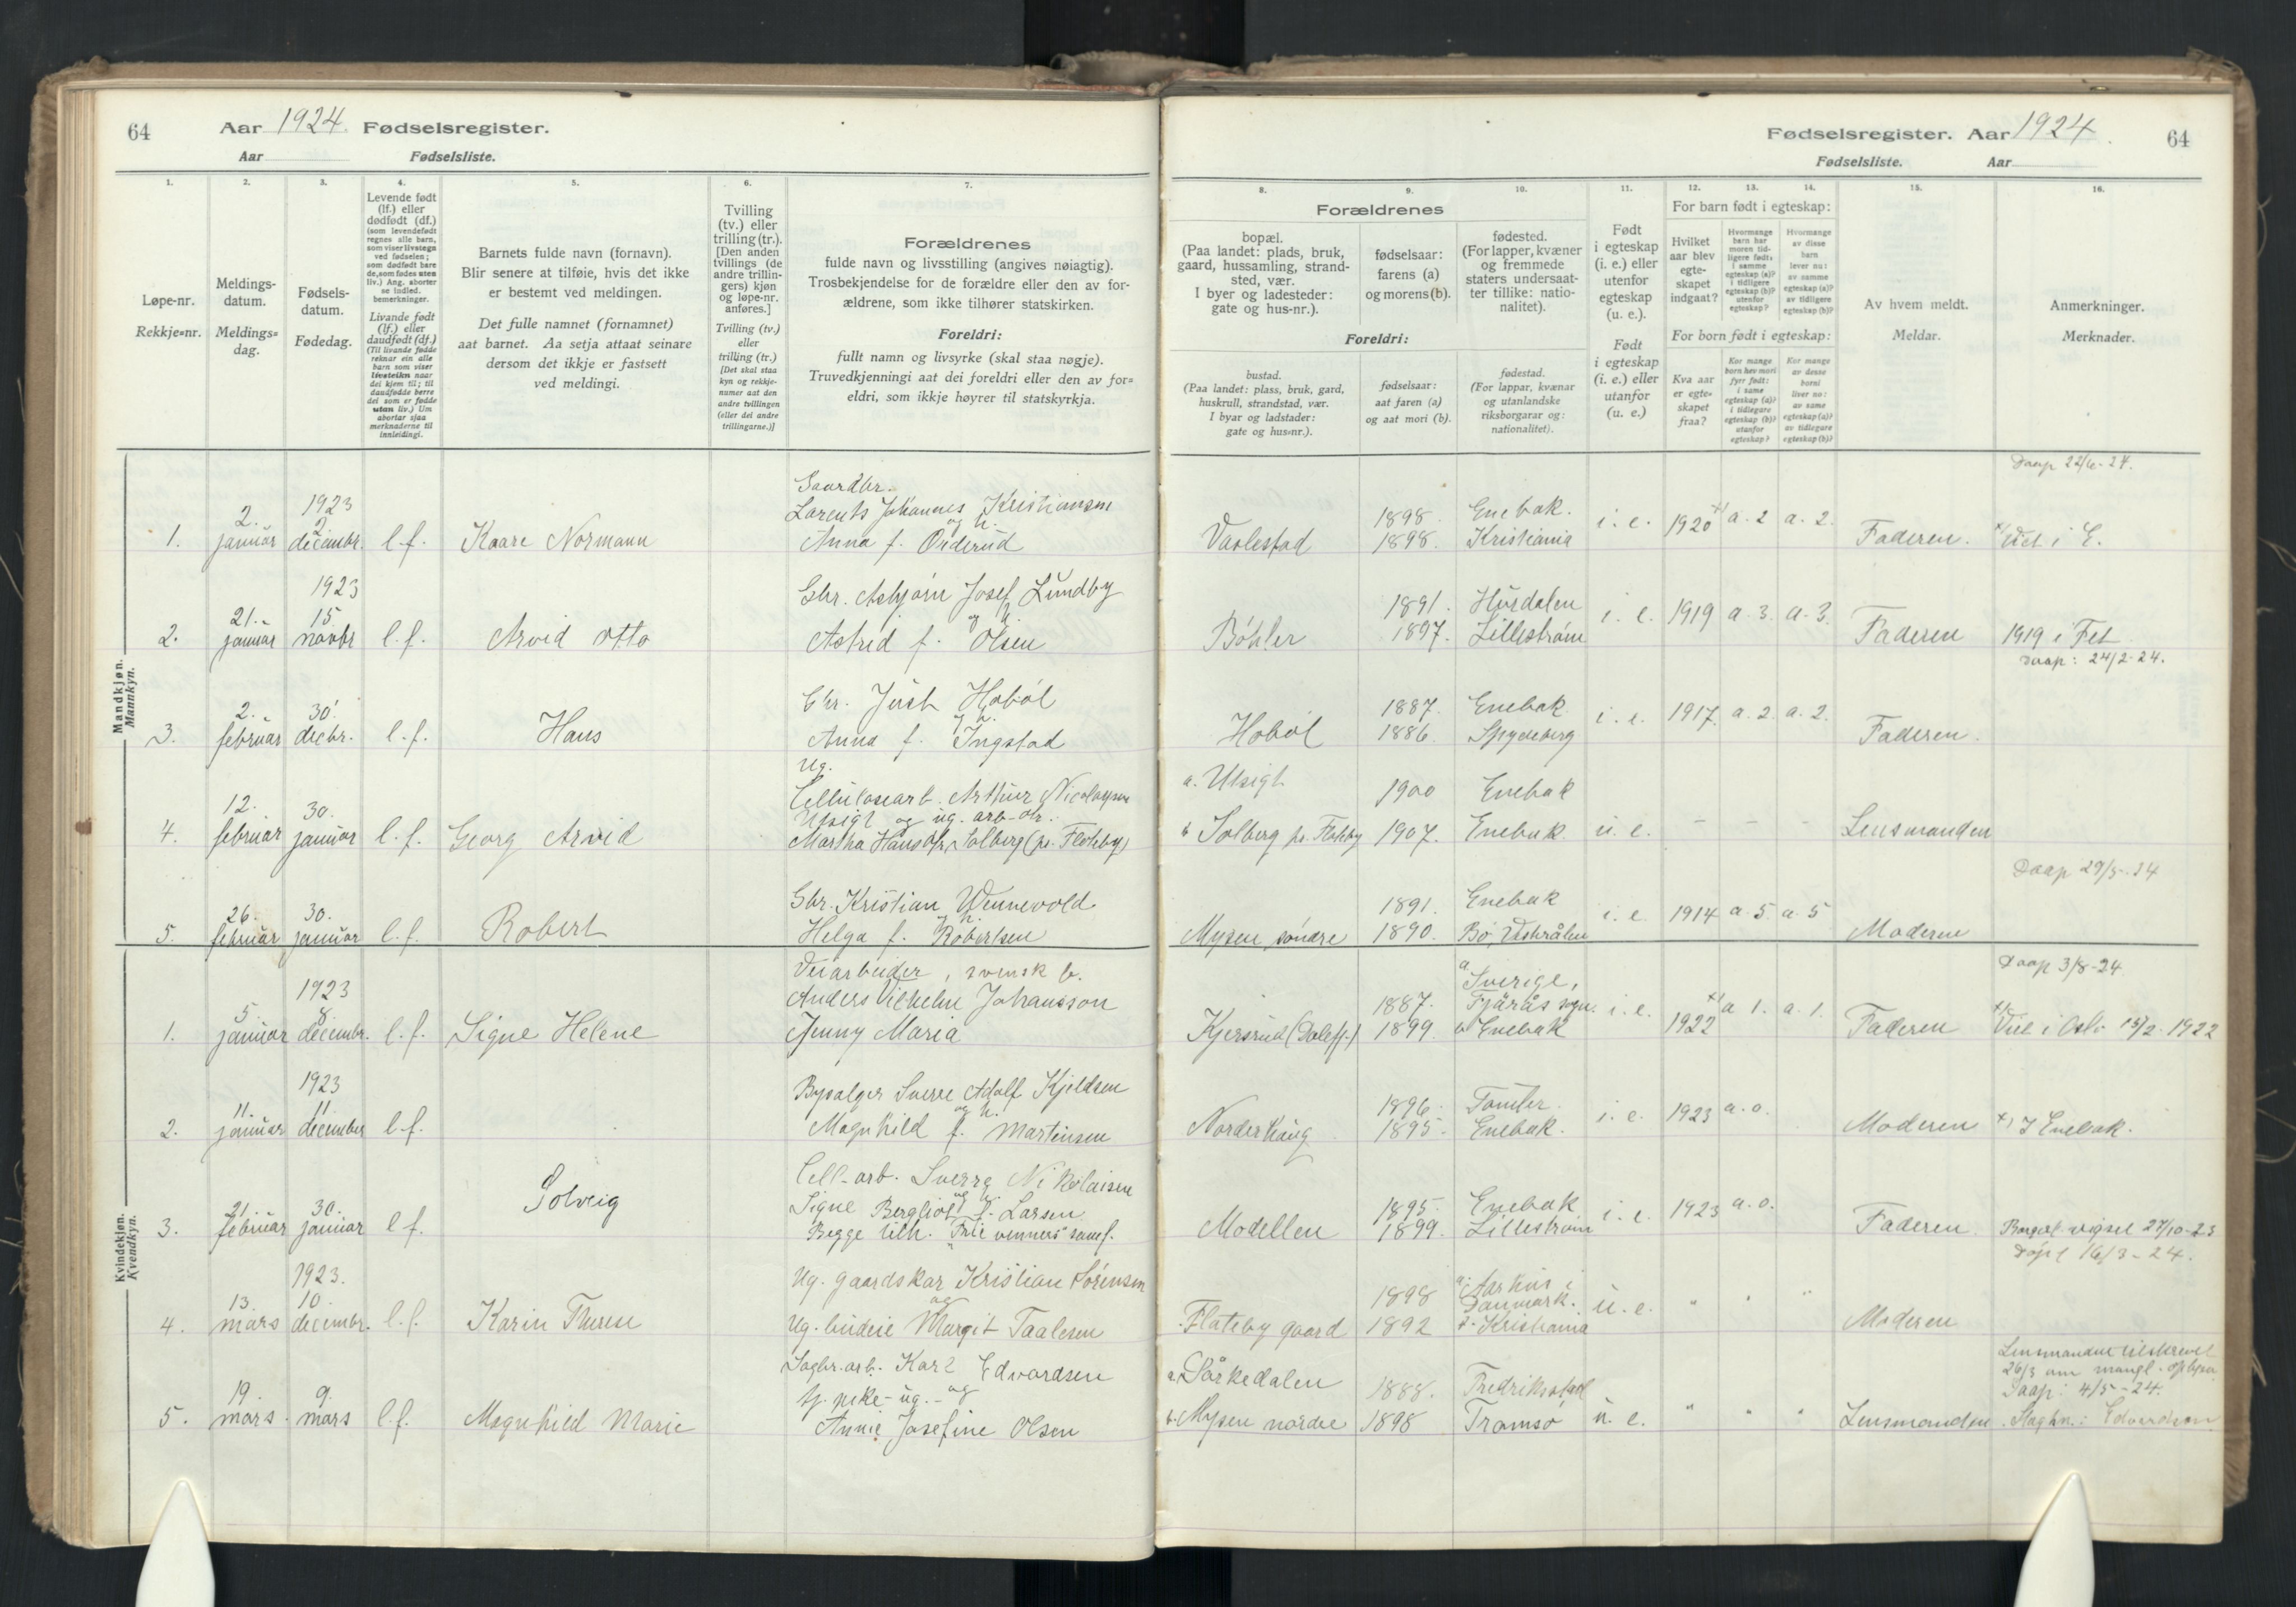 64 Aar 1924. Fødselsregister.
Aar Fødselsliste.
Fødselsregister. Aar 1924. 64
Fødselsliste. Aar
1.
Løpe-nr.
Rekkje=nr.
2.
Meldings-
datum.
Meldings=
dag.
3.
Fødsels-
datum.
Fødedag.
4.
Levende født
(lf.) eller
dødfødt (df.)
(som levendefødt
regnes alle barn,
som viser livstegn
ved fødselen;
som dødfødt bare
de, som fødes uten
liv.) Ang. aborter
se indled.
bemerkninger.
Livande født
(lf.) eller
daudfødt (df.)
(Til livande fødde
reknar ein alle
barn som viser
livsteikn naar
dei kjem til; til
daudfødde berre
dei som er fødde
utan liv.) Um
abortar sjaa
merknaderne til
innleidingi.
5.
Barnets fulde navn (fornavn).
Blir senere at tilføie, hvis det ikke
er bestemt ved meldingen.
Det fulle namnet (fornamnet)
aat barnet. Aa setja attaat seinare
dersom det ikkje er fastsett
ved meldingi.
6.
Tvilling
(tv.) eller
trilling (tr.).
[Den anden
tvillings (de
andre trillin-
gers) kjøn
og løpe-nr.
anføres.]
Tvilling (tv.)
eller
trilling (tr.)
[Det skal staa
kyn og rekkje-
numer aat den
andre tvillingen
(eller dei andre
trillingarne.)]
7.
Forældrenes
fulde navn og livsstilling (angives nøiagtig).
Trosbekjendelse for de forældre eller den av for-
ældrene, som ikke tilhører statskirken.
Foreldri:
fullt namn og livsyrke (skal staa nøgje).
Truvedkjenningi aat dei foreldri eller den av for=
eldri, som ikkje høyrer til statskyrkja.
8.
Forældrenes
bopæl.
(Paa landet: plads, bruk,
gaard, hussamling, strand-
sted, vær.
I byer og ladesteder:
gate og hus-nr.).
Foreldri:
bustad.
(Paa landet: plass, bruk, gard,
huskrull, strandstad, vær.
I byar og ladstader:
gate og hus=nr.).
9.
fødselsaar:
farens (a)
og morens (b).
fødselsaar:
aat faren (a)
og aat mori (b).
10.
fødested.
(For lapper, kvæner
og fremmede
staters undersaat-
ter tillike: natio-
nalitet).
fødestad.
(For lappar, kvænar
og utanlandske
riksborgarar og:
nationalitet).
11.
Født
i egteskap
(i. e.) eller
utenfor
egteskap
(u. e.).
Født
i egteskap
(i. e.) eller
utanfor
egteskap
(u. e.)
12. 13. 14.
For barn født i egteskap:
Hvilket
aar blev
egte-
skapet
indgaat?
Hvormange
barn har
moren tid-
ligere født:
i samme
egteskap (a)?
i tidligere
egteskap (b)?
utenfor
egteskap?
Hvormange
av disse
barn
lever nu:
av samme
egteskap (a)?
av tidligere
egteskap (b)?
For born født i egteskap:
Kva aar
er egte=
skapet
fraa?
Kor mange
born hev mori
fyrr født:
i same
egteskap (a)?
i tidlegare
egteskap (b)?
utanfor
egteskap?
Kor mange
av desse
borni
liver no:
av same
egteskap (a)?
av tidlegare
egteskap (b)?
15.
Av hvem meldt.
Meldar.
16.
Anmerkninger.
Merknader.
Mandkjøn.
Mannkyn.
1. 2. januar 1923 2. decembr. l.f. Kaare Normann
Gaardbr.
Lorents Johannes Kristiansen
og h.
Anna f. Orderud
Vaolestad 1898. 1898. Enebak. Kristiania i. e. 1920 x) a. 2 a. 2. Faderen.
Daap 22/6-24.
x) Viet i E.
2. 21. januar 1923 15. novbr l.f. Arvid Otto
Gbr. Asbjørn Josef Lundby
og h.
Astrid f. Olsen
Bøhler 1891. 1897. Hurdalen Lillestrøm i. e. 1919 a. 3. a. 3. Faderen
1919 i Fet
Daap: 24/2-24.
3. 2. februar 30. decbr. l.f. Hans
Gbr. Just Hobøl
og h.
Anna f. Ingstad
Hobøl 1887. 1886. Enebak Spydeberg i. e. 1917. a. 2. a. 2. Faderen.
4. 12. februar 30. januar l.f. Georg Arvid
Ug.
Cellulosearb. Arthur Nicolaysen
Utsigt og ug. arb-dtr.
Martha Hansdtr. Solberg (pr. Flateby)
a. Utsigt 1900 Enebak
b Solberg pr. Flateby 1907. Enebak. u. e. - - - Lensmanden
5. 26. februar 30. januar l.f. Robert
Gbr. Kristian Wennevold
og h.
Helga f. Robertsen
Mysen, søndre 1891. 1890. Enebak Bø, Vesterålen i. e. 1914 a. 5 a. 5 Moderen
Daap 29/5-24
Kvindekjøn.
Kvendkyn.
1. 5. januar 1923 8. decembr. l.f. Signe Helene
Veiarbeider, svensk b.
Anders Vilhelm Johansson
Jenny Maria
Kjersrud (Dalefj.) 1887. 1899. a Sverige, Fjärås sogn. b Enebak i. e. x) 1922 a 1. a. 1. Faderen
Daap 3/8-24.
x) Viet i Oslo 15/2-1922
2. 11. januar 1923 11 december l.f.
Bysælger Sverre Adolf Kjeldsen
og h.
Magnhild f. Martinsen
Norderhaug 1896. 1895. Tomter. Enebak. i. e. 1923 a. 0. Moderen x) I Enebak.
3. 21. februar 30. januar l f. Solveig
Cell-arb. Sverre Nikolaisen
og h.
Signe Bergliot f. Larsen
Begge tilh. "Frie venners" samf.
Modellen 1895. 1899. Enebak Lillestrøm i. e. 1923 a. 0. Faderen.
Borgerl. vigsel 27/10-23
Døpt 16/3-24.
4. 13. mars 1923. 10. decembr. l.f. Karin Therese
Ug. gaardskar Kristian Sørensen
og
Ug. budeie Margit Taalesen
Flateby gaard 1898 1892 a. Aarhus i Danmark. b. Kristiania u. e. " " " Moderen
5. 19. mars. 9. mars l.f. Magnhild Marie
Sagbr.arb. Karl Edvardsen
tj. pike-ug.- og
Annie Josefine Olsen
a. Sørkedalen 1888. Fredriksstad
b. Mysen nordre 1898 Tromsø u. e. " " " Lensmanden
Lensmanden tilskrevet
26/3 om mangl. oplysn.
Daap: 4/5-24.
Slagtn.: Edvardsen